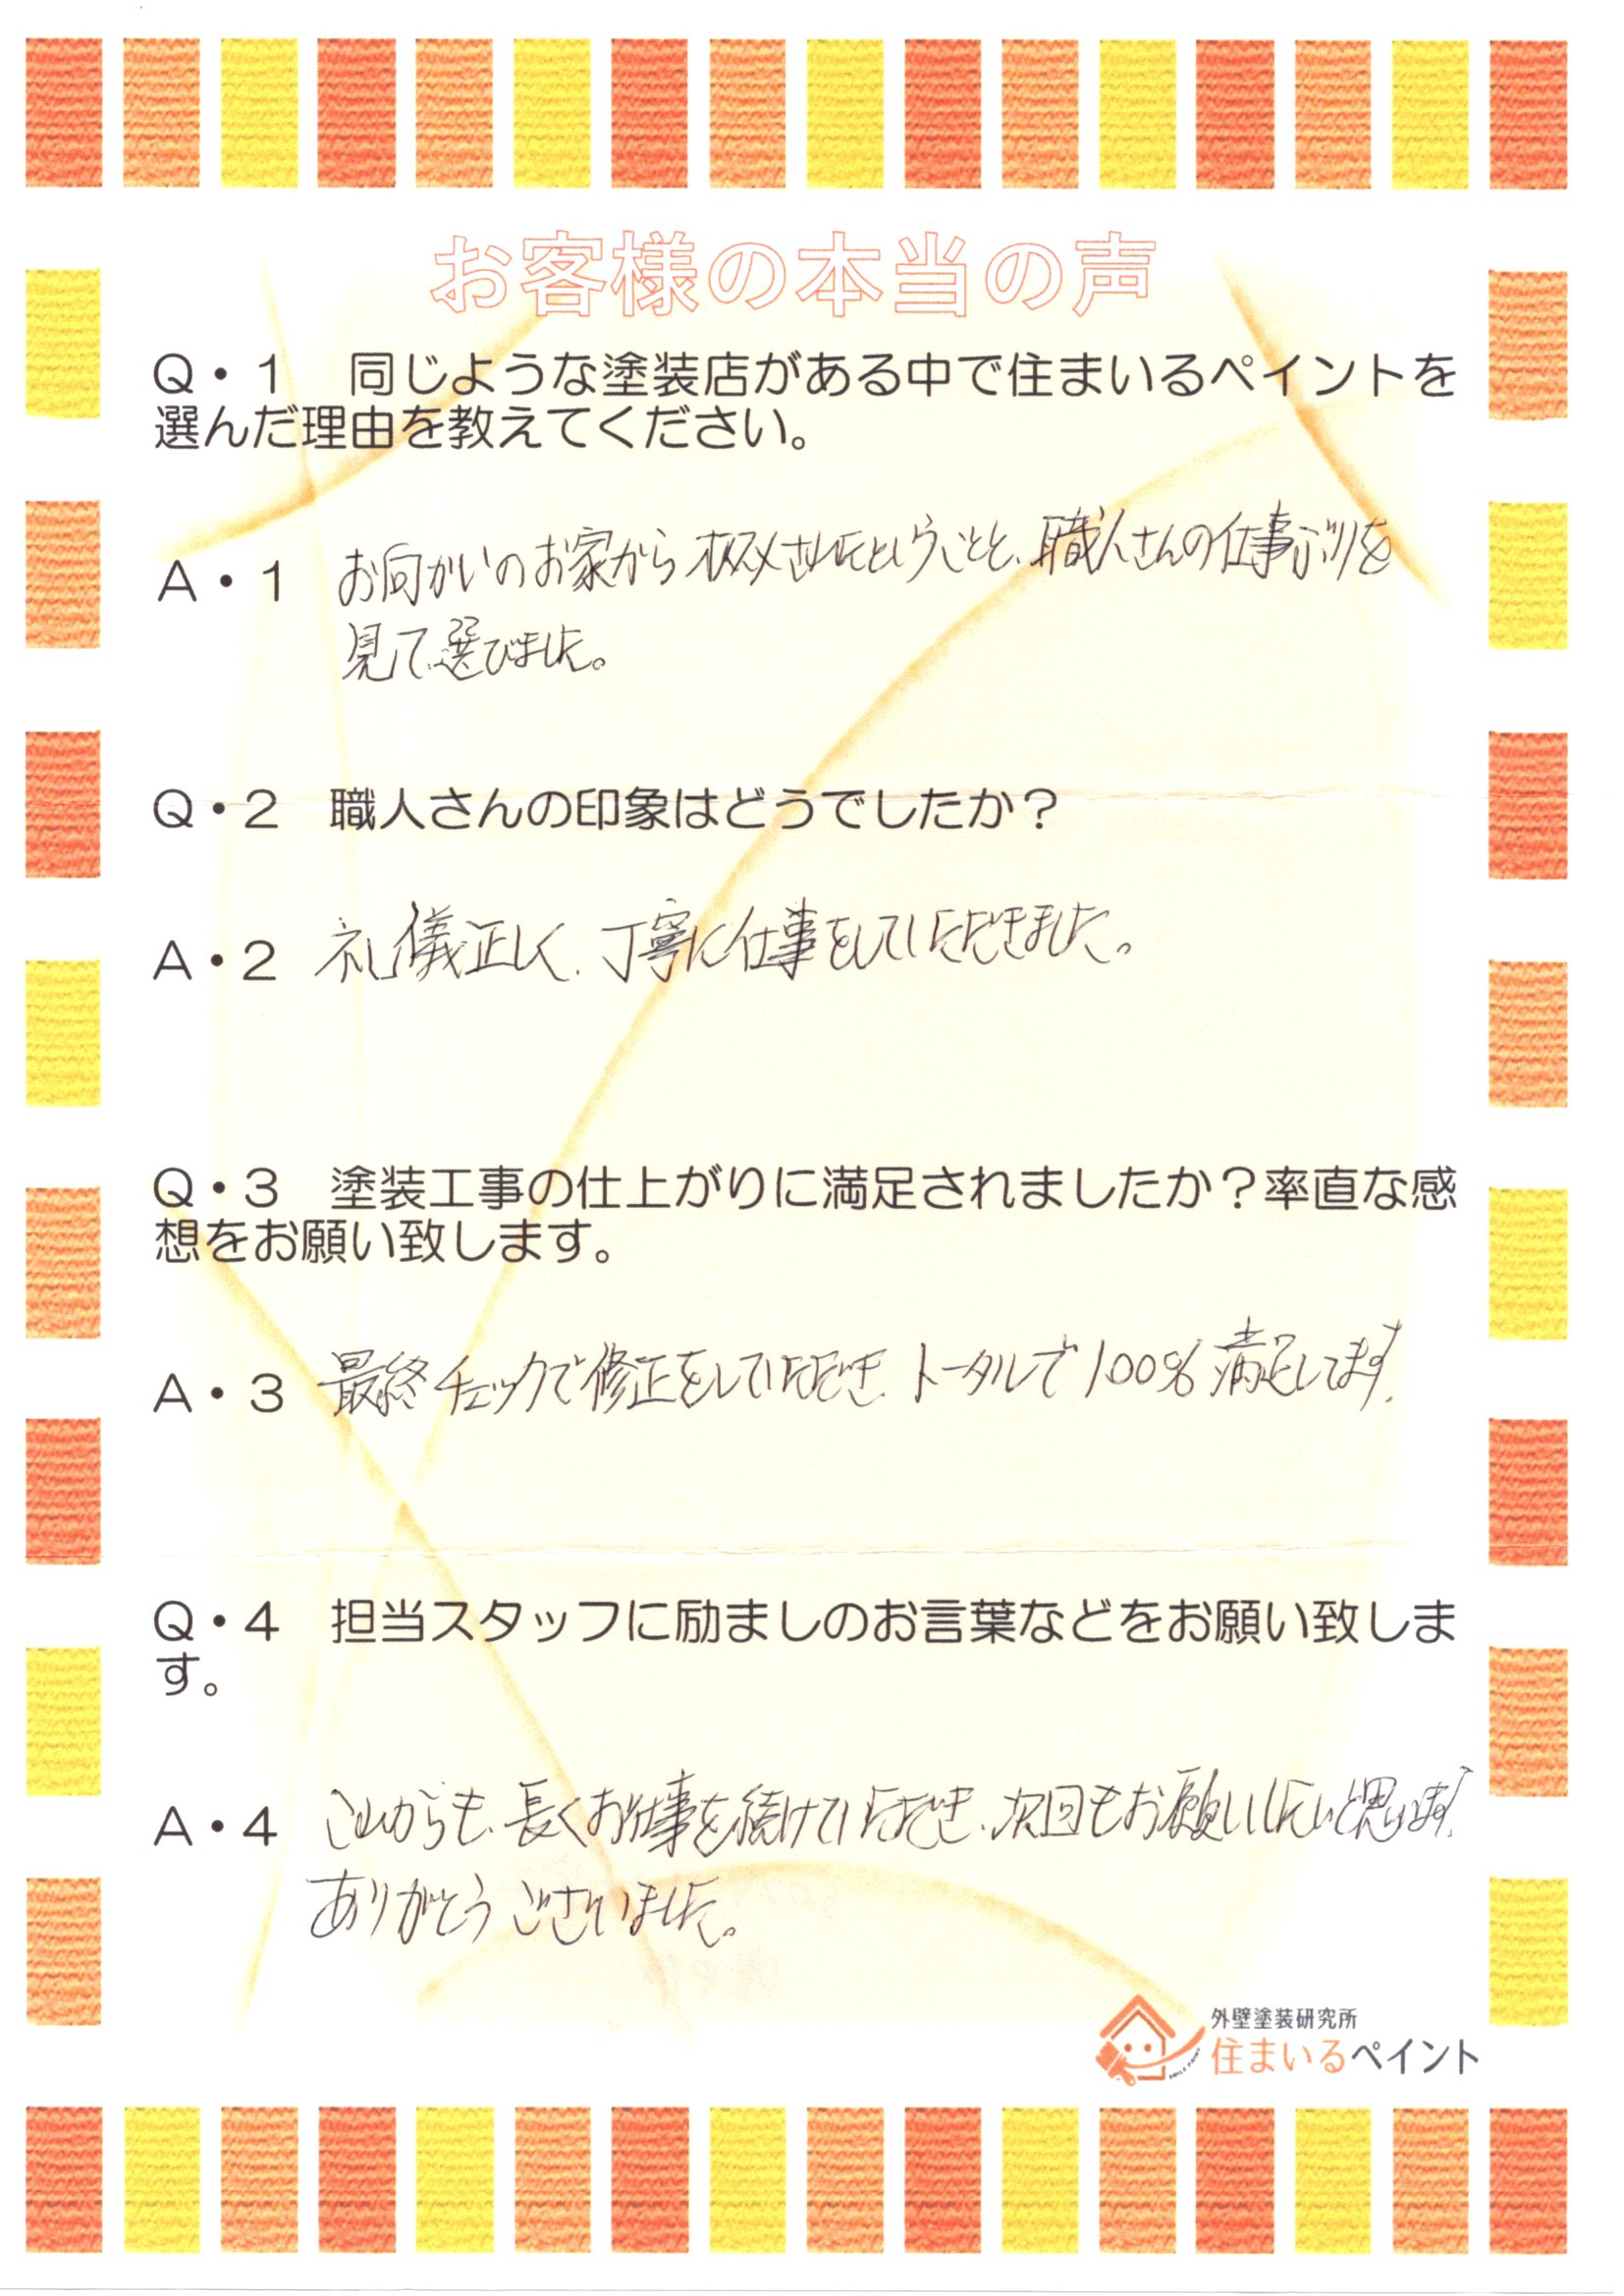 お客様の本当の声
Q・1　同じような塗装店がある中で住まいるペイントを
選んだ理由を教えてください。
A・1　お向かいのお家からオススメされたということと、職人さんの仕事ぶりを
見て選びました。
Q・2　職人さんの印象はどうでしたか？
A・2　礼儀正しく、丁寧に仕事をしていただきました。
Q・3　塗装工事の仕上がりに満足されましたか？率直な感
想をお願い致します。
A・3　最終チェックで修正をしていただき、トータルで100%満足してます。
Q・4　担当スタッフに励ましのお言葉などをお願い致しま
す。
A・4　これからも、長くお仕事を続けていただき、次回もお願いしたいと思います。
ありがとうございました。
外壁塗装研究所
住まいるペイント